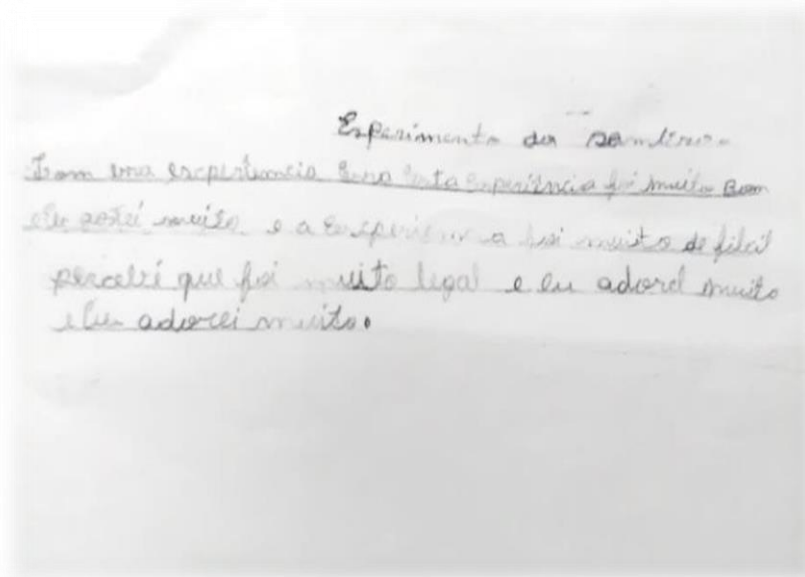 Experimento da
experiencia esta experiência foi muito Bom
eu gostei muito e a foi muito de ficil
percebi que foi muito legal e eu adorei muito
e eu adorei muito.